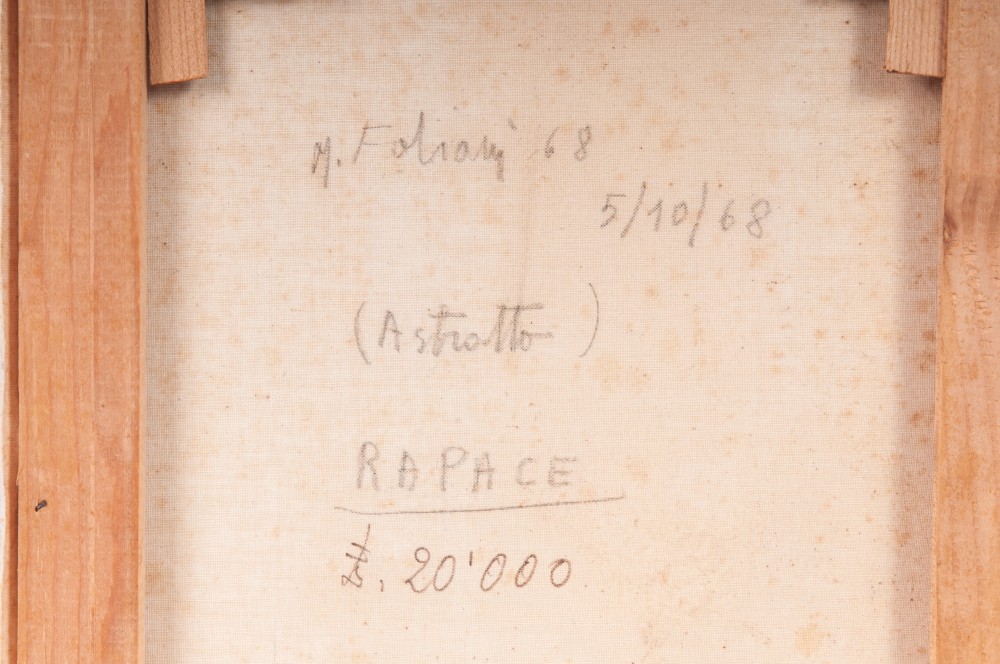 M. Fabiani 68
5/10/68
(Astratto)
RAPACE
£. 20'000